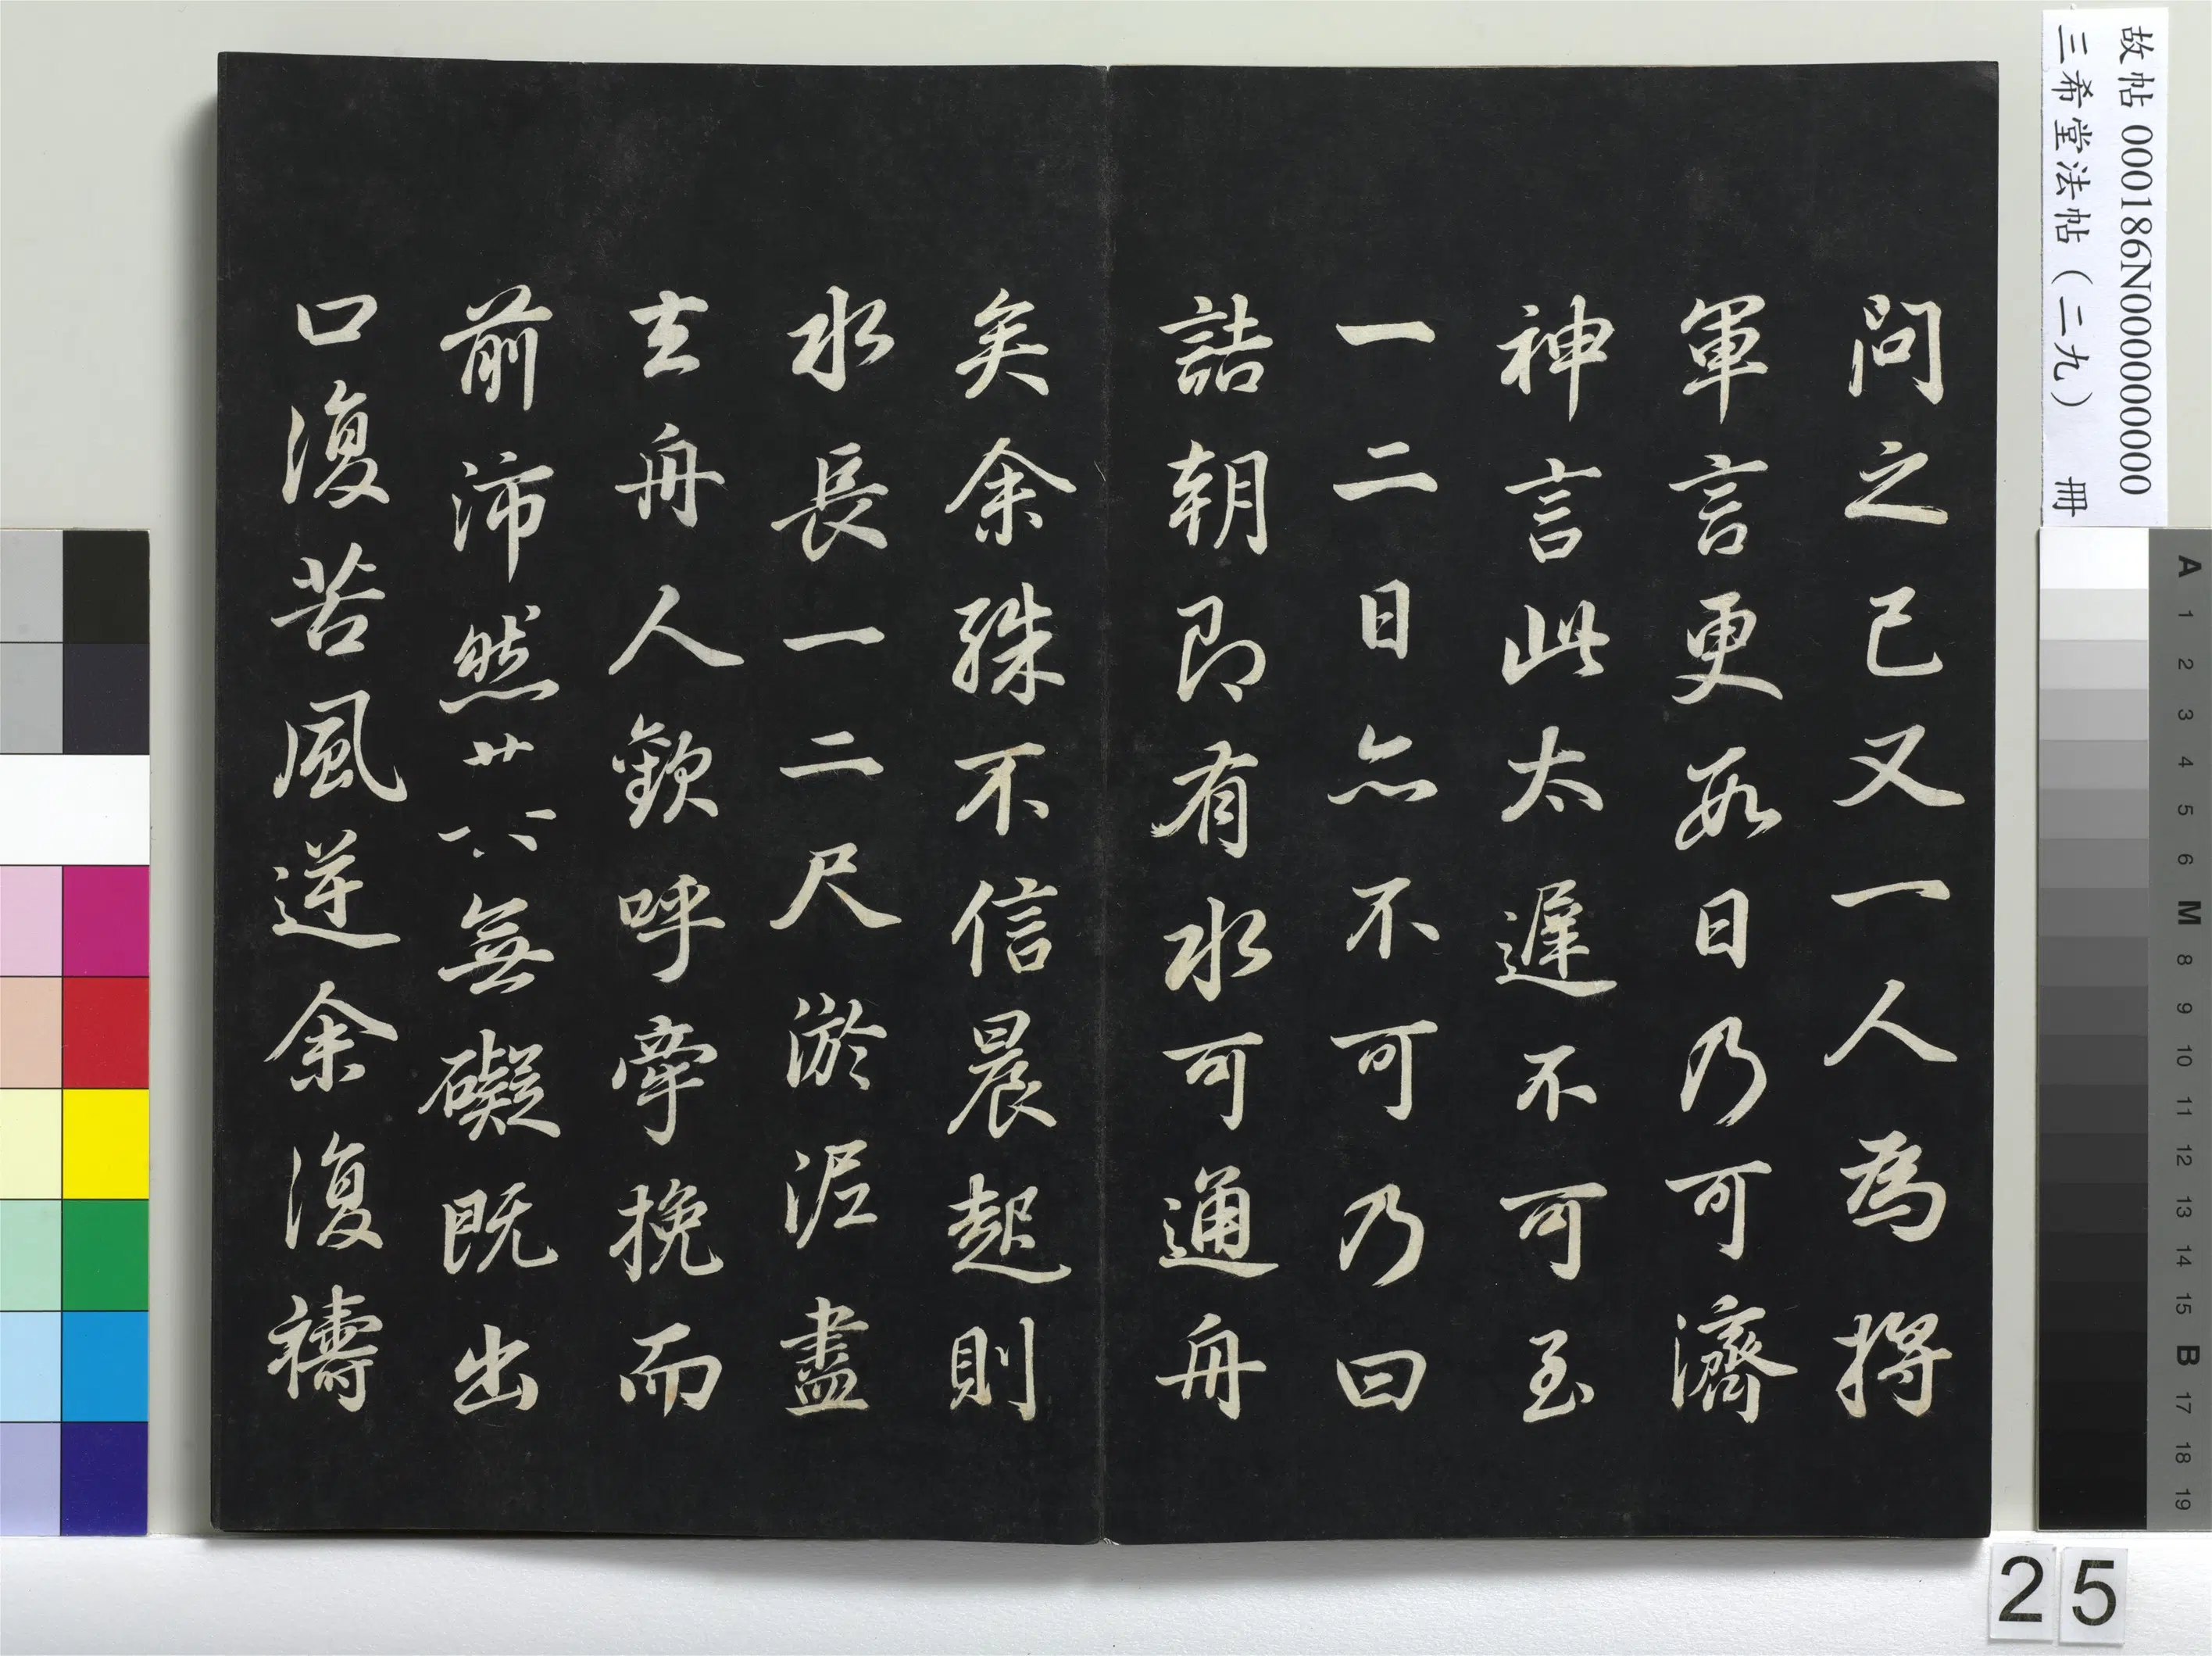 故帖 000186N000000000
三希堂法帖（二九） 冊
問之已又一人為將
軍言更數日乃可濟
神言此太遲不可至
一二日亦不可乃曰
詰朝即有水可通舟
矣余殊不信晨起則
水長一二尺淤泥盡
去舟人歡呼牽挽而
前沛然無礙既出
口復苦風逆余復禱
A 1 2 3 4 5 6 M 8 9 10 11 12 13 14 15 B 17 18 19
25